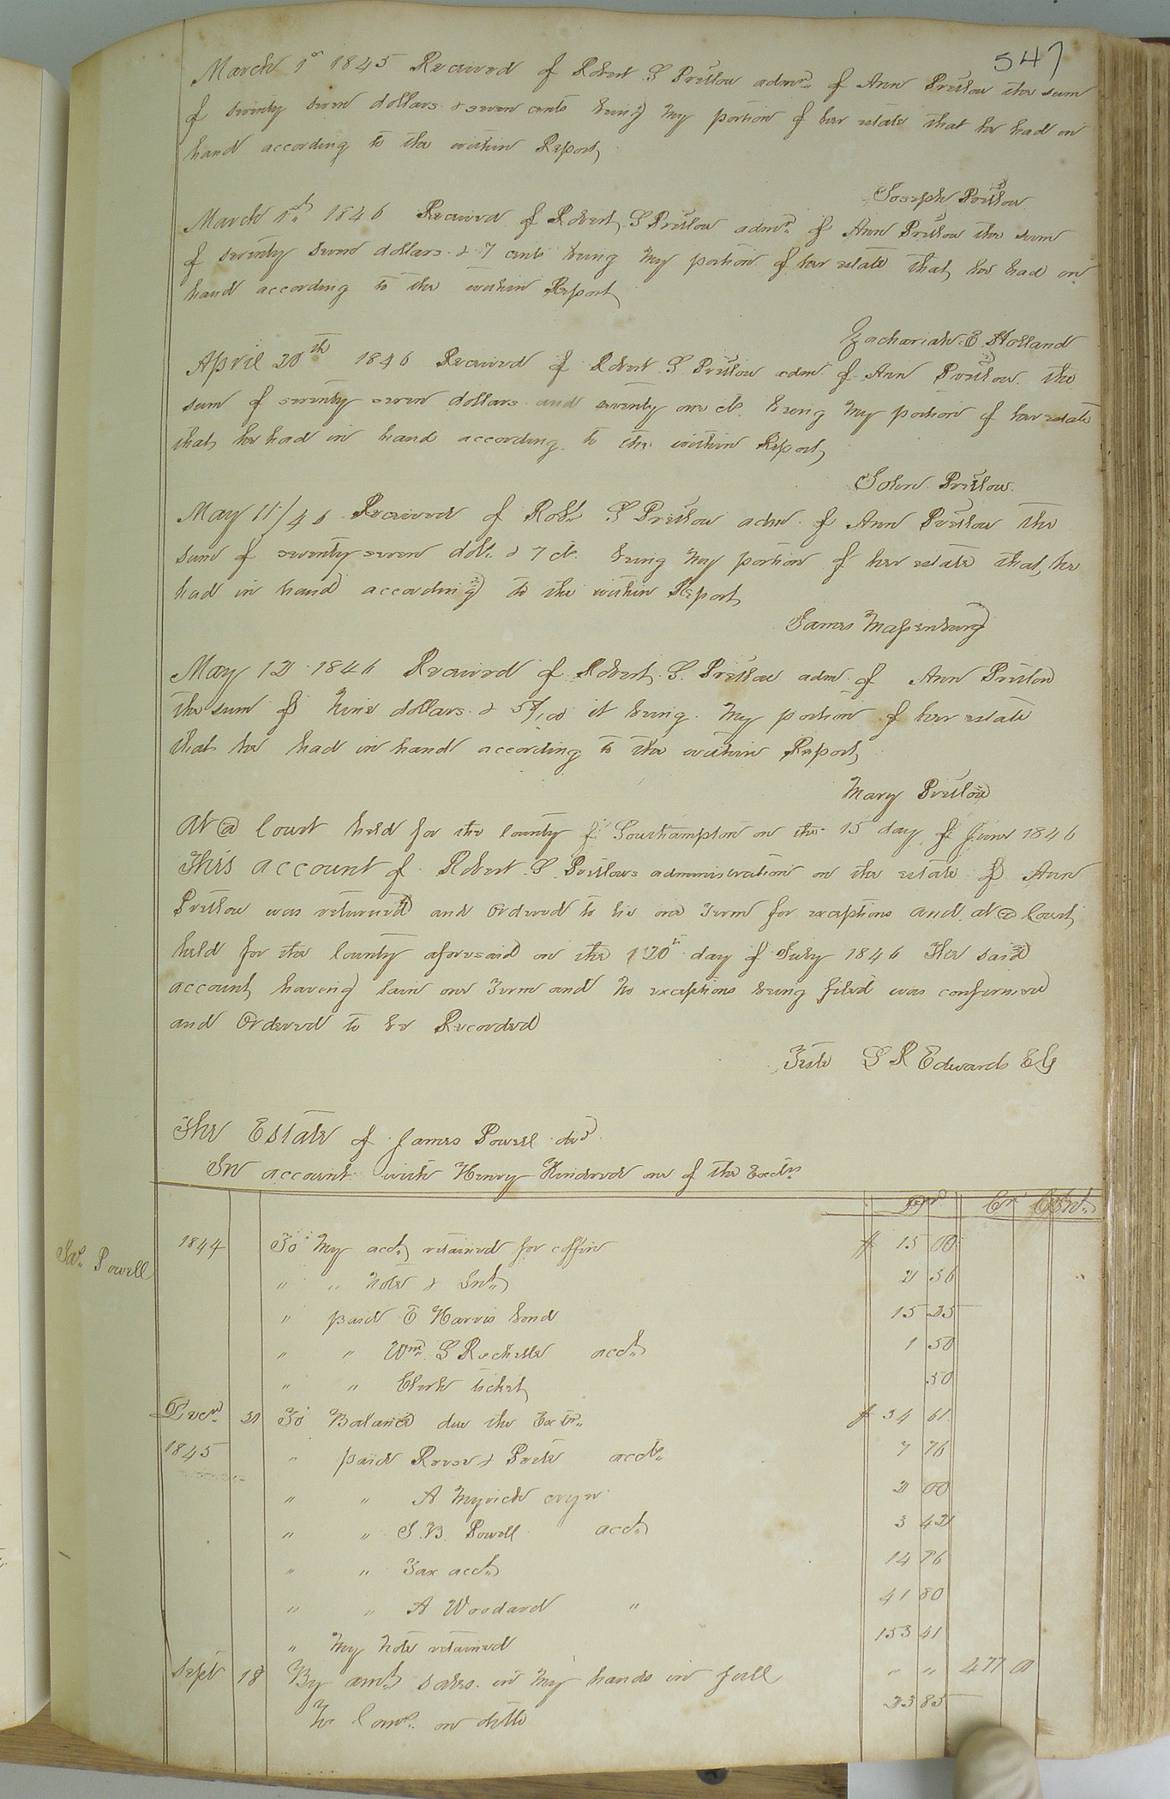 547
March 1st 1845 Received of Robert S Pretlow admr of Ann Pretlow the sum
of seventy seven dollars & seven cents being my portion of her estate that he had in
hand according to the within Report
Joseph Pretlow
March 1st 1846 Received of Robert S Pretlow admr of Ann Pretlow the sum
of seventy seven dollars & 7 cents being my portion of her estate that he had on
hand according to the within Report
Zachariah E Holland
April 20th 1846 Received of Robert S Pretlow adm of Ann Pretlow the
sum of seventy seven dollars and seventy one ct being my portion of her estate
that he had in hand according to the within Report
John Pretlow
May 11/46 Received of Robt S Pretlow adm of Ann Pretlow the
sum of seventy seven dolls & 7 ct being my portion of her estate that he
had in hand according to the within Report
James Massenburg
May 12 1846 Received of Robert S. Pretlow adm of Ann Pretlow
the sum of Nine dollars & /100 it being my portion of her estate
that he had in hand according to the within Report
Mary Pretlow
At a Court held for the County of Southampton on the 15 day of June 1846
This account of Robert S Pretlows administration on the estate of Ann
Pretlow was returned and Ordered to lie one Term for exceptions and at a Court
held for the County aforesaid on the 20th day of July 1846 The said
account having lain one Term and No exceptions being filed was confirmed
and Ordered to be Recorded
Teste L R Edwards Clk
The Estate of James Powell decd
In account with Henry Kindred one of the Exctrs
Dr Cr
Jas. Powell
1844 To My acct retained for coffin $ 15 00
" " Note & Int 2 36
" paid E Harris bond 15 25
" " Wm. S Rochelle acct 1 50
" " Clerk ticket 50
Decr 31 To Balance due the Extr $ 34 61
1845 " paid & Pretlow acct 7 76
" " A Myrick 2 00
" " J. B. Powell acct 3 42
" " Tax acct 14 76
" " A Woodard " 41 80
" My Note retained 153 41
Sept 18 By amt sales in my hands in full " " 477 01
To Coms. on ditto 23 85